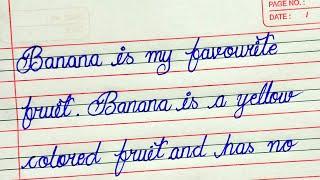 PAGE NO.:
DATE: /
Banana is my favourite
fruit. Banana is a yellow
colored fruit and has no